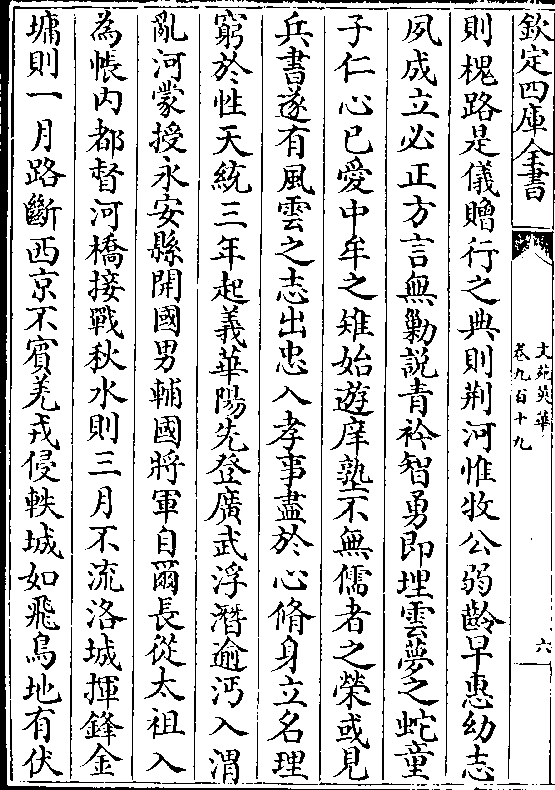 欽定四庫全書
文苑英華
卷九百十九
六
則槐路是儀贈行之典則荆河惟牧公弱齡早惠幼志
夙成立必正方言無勦説青衿智勇即埋雲夢之蛇童
子仁心已愛中牟之雉始遊庠塾不無儒者之榮或見
兵書遂有風雲之志出忠入孝事盡於心脩身立名理
窮於性天統三年起義華陽先登廣武浮潛逾沔入渭
亂河蒙授永安縣開國男輔國將軍自爾長從太祖入
為帳内都督河橋接戰秋水則三月不流洛城揮鋒金
墉則一月路斷西京不賓羌戎侵軼城如飛鳥地有伏